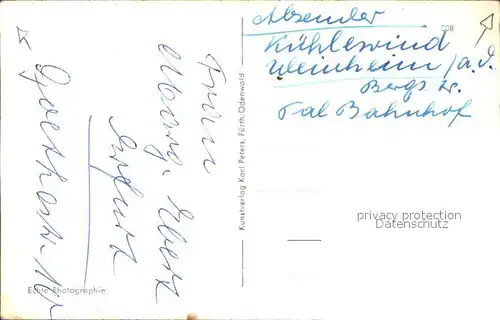 Absender
Kühlewind
Weinheim / a. d.
Bergstr.
Tal Bahnhof
208
Frau
Erfurt
Goethestr.
Kunstverlag Karl Peters, Fürth Odenwald
Echte Photographie
privacy protection
Datenschutz